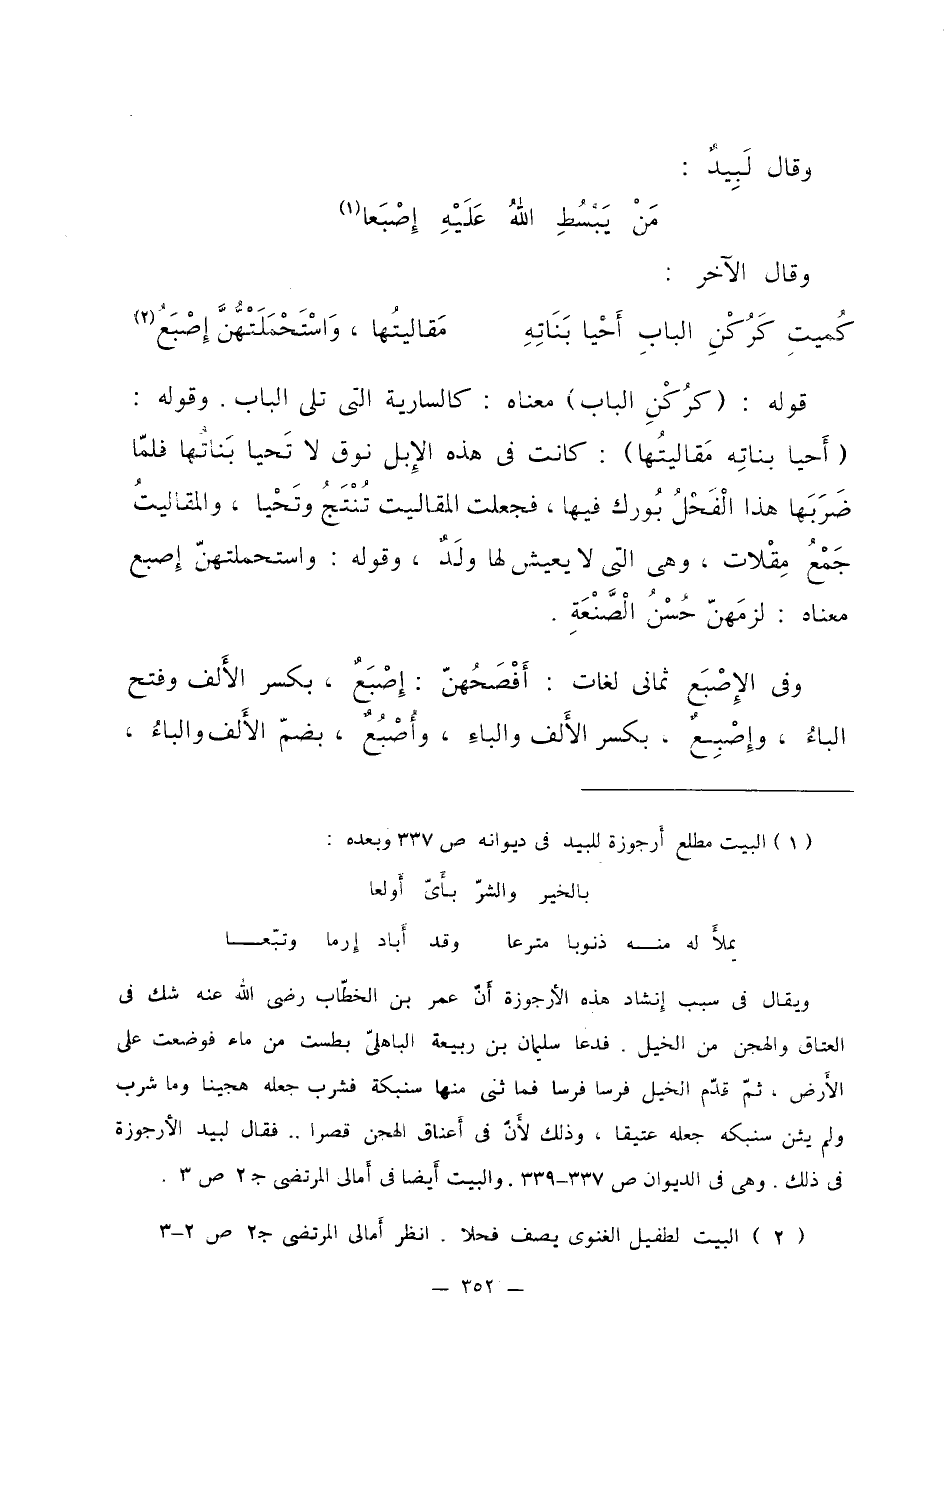 وقال لَبِيدٌ :
مَنْ يَبْسُطِ اللهُ عَلَيْهِ إِصْبَعا(١)
وقال الآخر :
كُميتٍ كَرُكْنِ البابِ أَحْيا بَنَاتِهِ مَقَاليتُها ، وَاسْتَحْمَلَتْهُنَّ إِصْبَعُ(٢)
قوله : ( كرُكْنِ الباب) معناه : كالسارية التى تلى الباب . وقوله :
( أَحيا بناتِه مَقاليتُها) : كانت فى هذه الإِبل نوق لا تَحيا بَناتُها فلمّا
ضَرَبَها هذا الْفَحْلُ بُورك فيها ، فجعلت المقاليت تُنْتَجُ وتَحْيا ، والمقاليتُ
جَمْعُ مِقْلات ، وهى التى لا يعيش لها ولَدٌ ، وقوله : واستحملتهنّ إصبع
معناه : لزمَهنّ حُسْنُ الْصَّنْعَةِ .
وفى الإِصْبَع ثمانى لغات : أَفْصَحُهنّ : إِصْبَعٌ ، بكسر الأَلف وفتح
الباءُ ، وإِصْبِعٌ ، بكسر الأَلف والباءِ ، وأُصْبُعٌ ، بضمّ الأَلف والباءُ ،
( ١ ) البيت مطلع أَرجوزة للبيد فى ديوانه ص ٣٣٧ وبعده :
بالخير والشرّ بأَىّ أَولعا
يملأَ له منــه ذنوبا مترعا وقد أَباد إرما وتبّعــــا
ويقال فى سبب إنشاد هذه الأرجوزة أَنّ عمر بن الخطّاب رضى الله عنه شك فى
العتاق والهجن من الخيل . فدعا سليمان بن ربيعة الباهلىّ بطست من ماء فوضعت على
الأَرض ، ثمّ قدّم الخيل فرسا فرسا فما ثنى منها سنبكة فشرب جعله هجينا وما شرب
ولم يثن سنبكه جعله عتيقا ، وذلك لأَنّ فى أَعناق الهجن قصرا .. فقال لبيد الأَرجوزة
فى ذلك . وهى فى الديوان ص ٣٣٧–٣٣٩ . والبيت أَيضا فى أَمالى المرتضى ج ٢ ص ٣ .
( ٢ ) البيت لطفيل الغنوى يصف فحلا . انظر أَمالى المرتضى ج٢ ص ٢–٣
— ٣٥٢ —